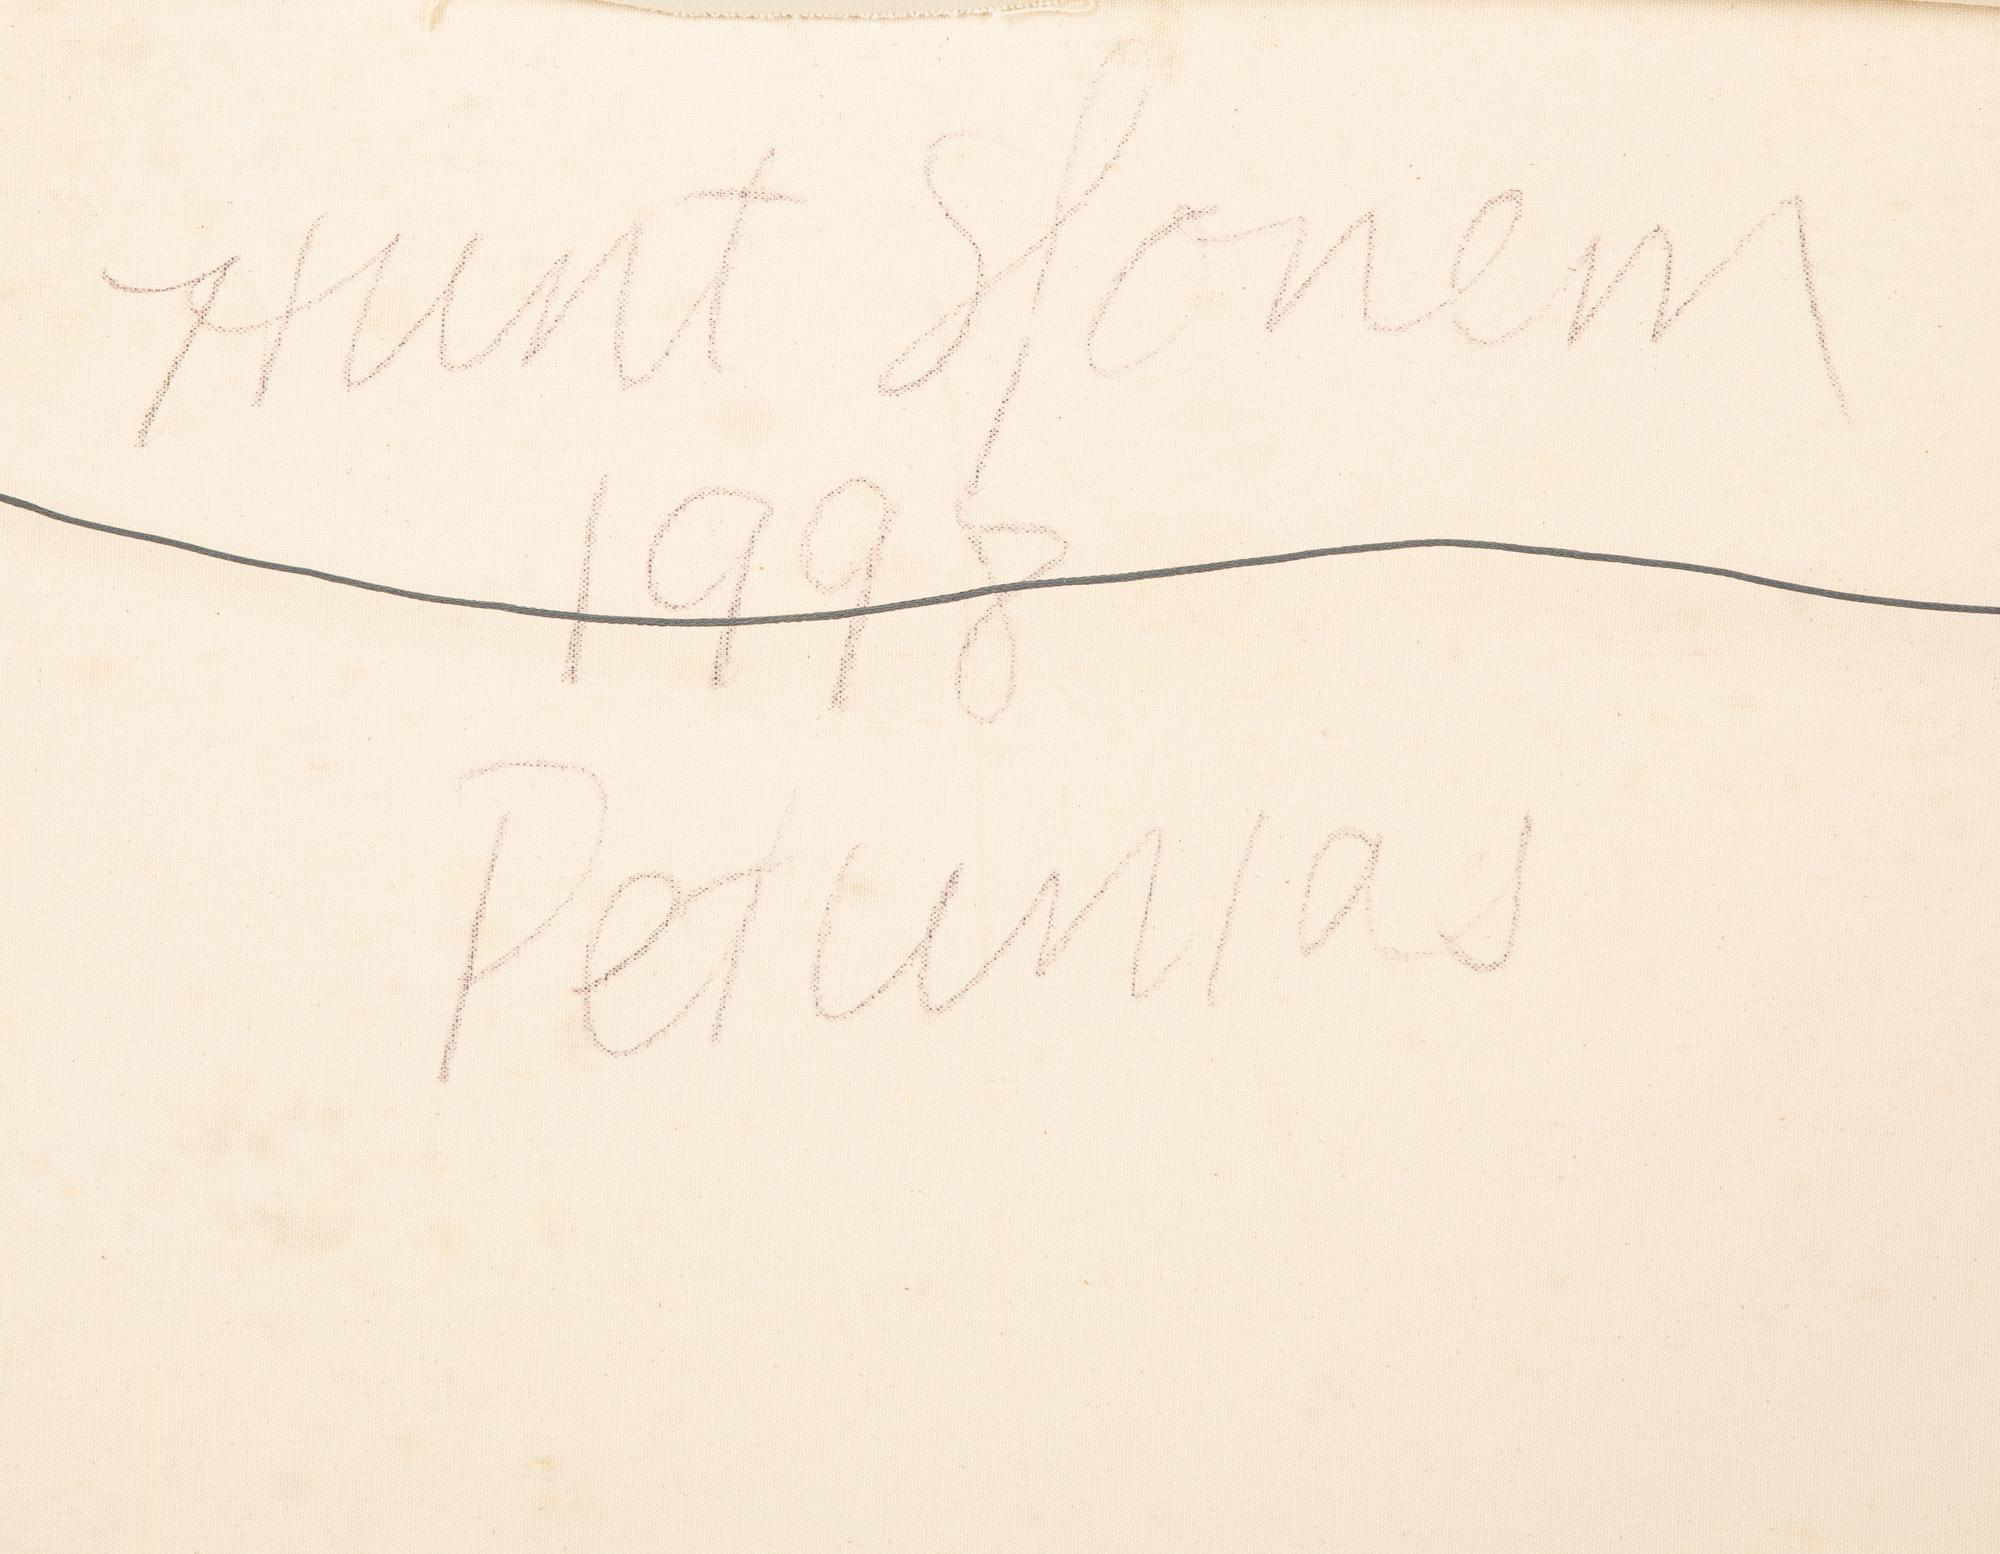 Hunt Slonem
1998
Petunias